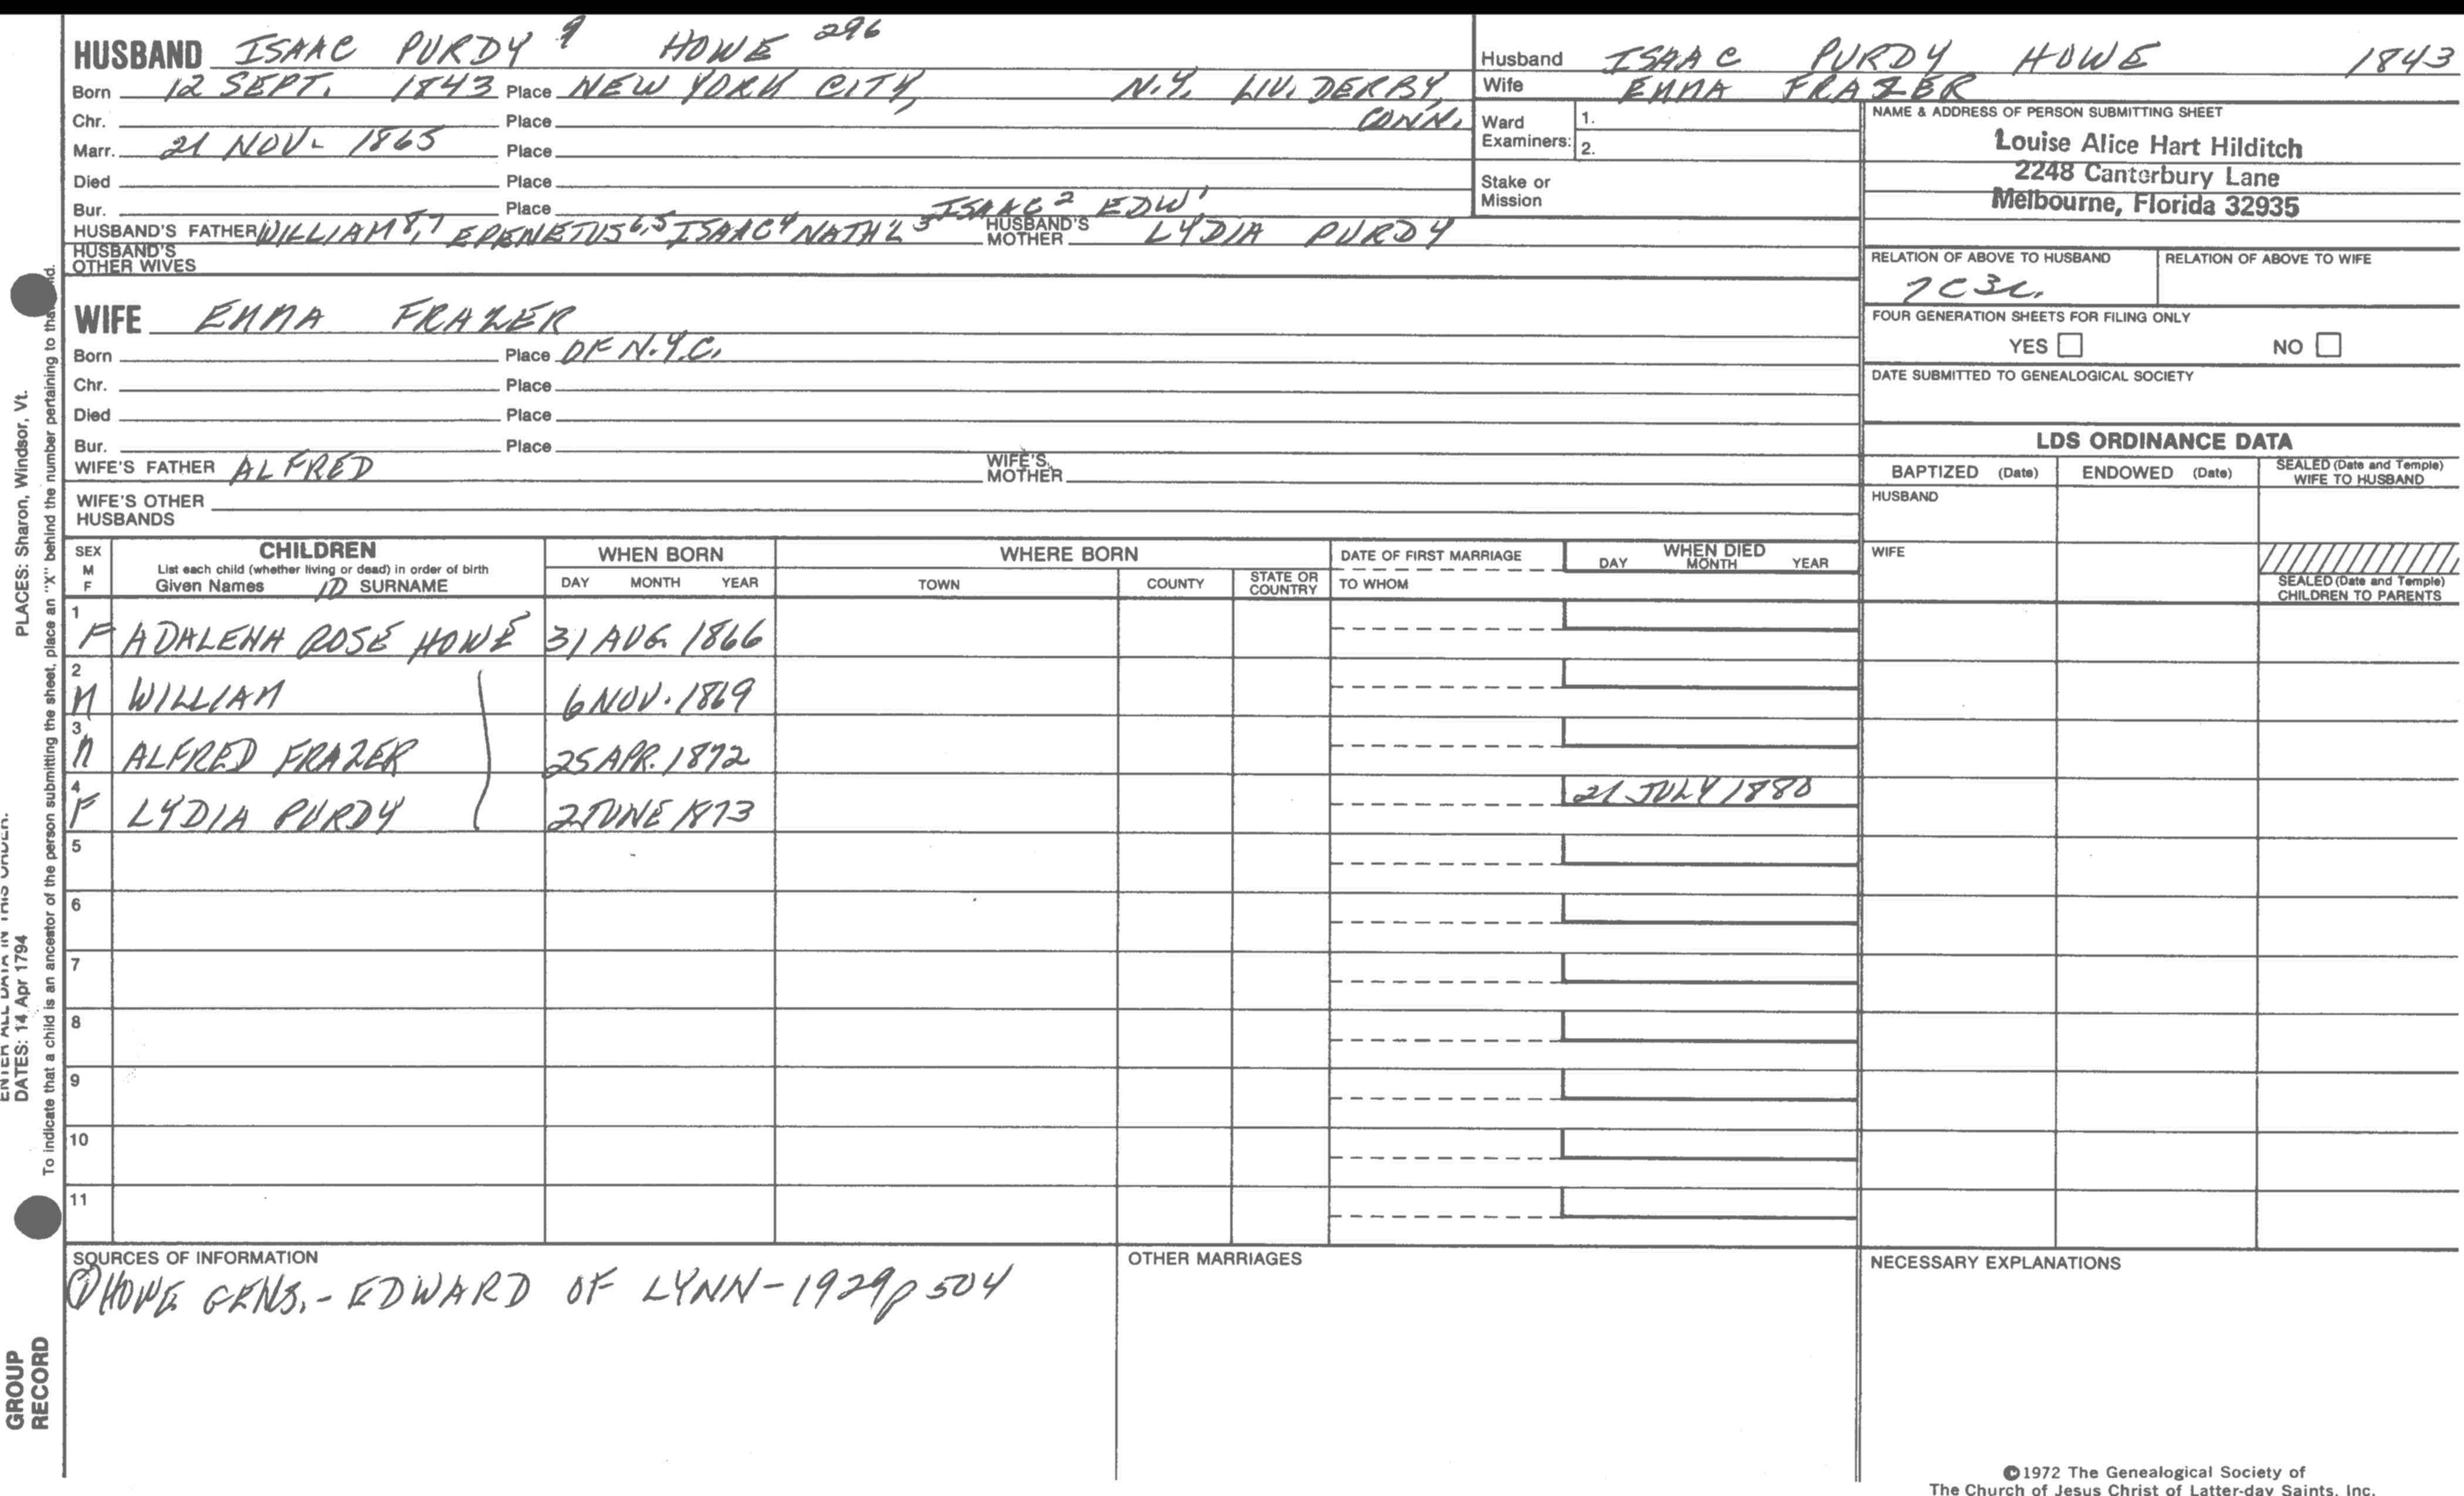 HUSBAND ISAAC PURDY 9 HOWE 296
Born 12 SEPT. 1843 Place NEW YORK CITY, N.Y. LIV. DERBY,
Chr. Place CONN.
Marr. 21 NOV- 1865 Place
Died Place
Bur. Place ISAAC 2 EDW 1
HUSBAND'S FATHER WILLIAM 8,7 EPENETUS 6,5 ISAAC 4 NATH'L 3 HUSBAND'S MOTHER LYDIA PURDY
HUSBAND'S OTHER WIVES
WIFE EMMA FRAZER
Born Place OF N.Y.C.
Chr. Place
Died Place
Bur. Place
WIFE'S FATHER ALFRED WIFE'S MOTHER
WIFE'S OTHER HUSBANDS
Husband ISAAC PURDY HOWE 1843
Wife EMMA FRAZER
Ward Examiners: 1.
2.
Stake or Mission
NAME & ADDRESS OF PERSON SUBMITTING SHEET
Louise Alice Hart Hilditch
2248 Canterbury Lane
Melbourne, Florida 32935
RELATION OF ABOVE TO HUSBAND RELATION OF ABOVE TO WIFE
7C3R.
FOUR GENERATION SHEETS FOR FILING ONLY
YES NO
DATE SUBMITTED TO GENEALOGICAL SOCIETY
LDS ORDINANCE DATA
BAPTIZED (Date) ENDOWED (Date) SEALED (Date and Temple) WIFE TO HUSBAND
HUSBAND
WIFE
SEALED (Date and Temple) CHILDREN TO PARENTS
SEX M F
CHILDREN
List each child (whether living or dead) in order of birth
Given Names 10 SURNAME
WHEN BORN
DAY MONTH YEAR
WHERE BORN
TOWN COUNTY STATE OR COUNTRY
DATE OF FIRST MARRIAGE
TO WHOM
WHEN DIED
DAY MONTH YEAR
1 F ADALENA ROSE HOWE 31 AUG. 1866
2 M WILLIAM 6 NOV. 1869
3 M ALFRED FRAZER 25 APR. 1872
4 F LYDIA PURDY 2 JUNE 1873 21 JULY 1880
5
6
7
8
9
10
11
SOURCES OF INFORMATION
① HOWE GENS. - EDWARD OF LYNN - 1929 p 504
OTHER MARRIAGES
NECESSARY EXPLANATIONS
©1972 The Genealogical Society of
The Church of Jesus Christ of Latter-day Saints, Inc.
PLACES: Sharon, Windsor, Vt.
ENTER ALL DATA IN THIS ORDER:
DATES: 14 Apr 1794
To indicate that a child is an ancestor of the person submitting the sheet, place an "X" behind the number pertaining to that
GROUP
RECORD